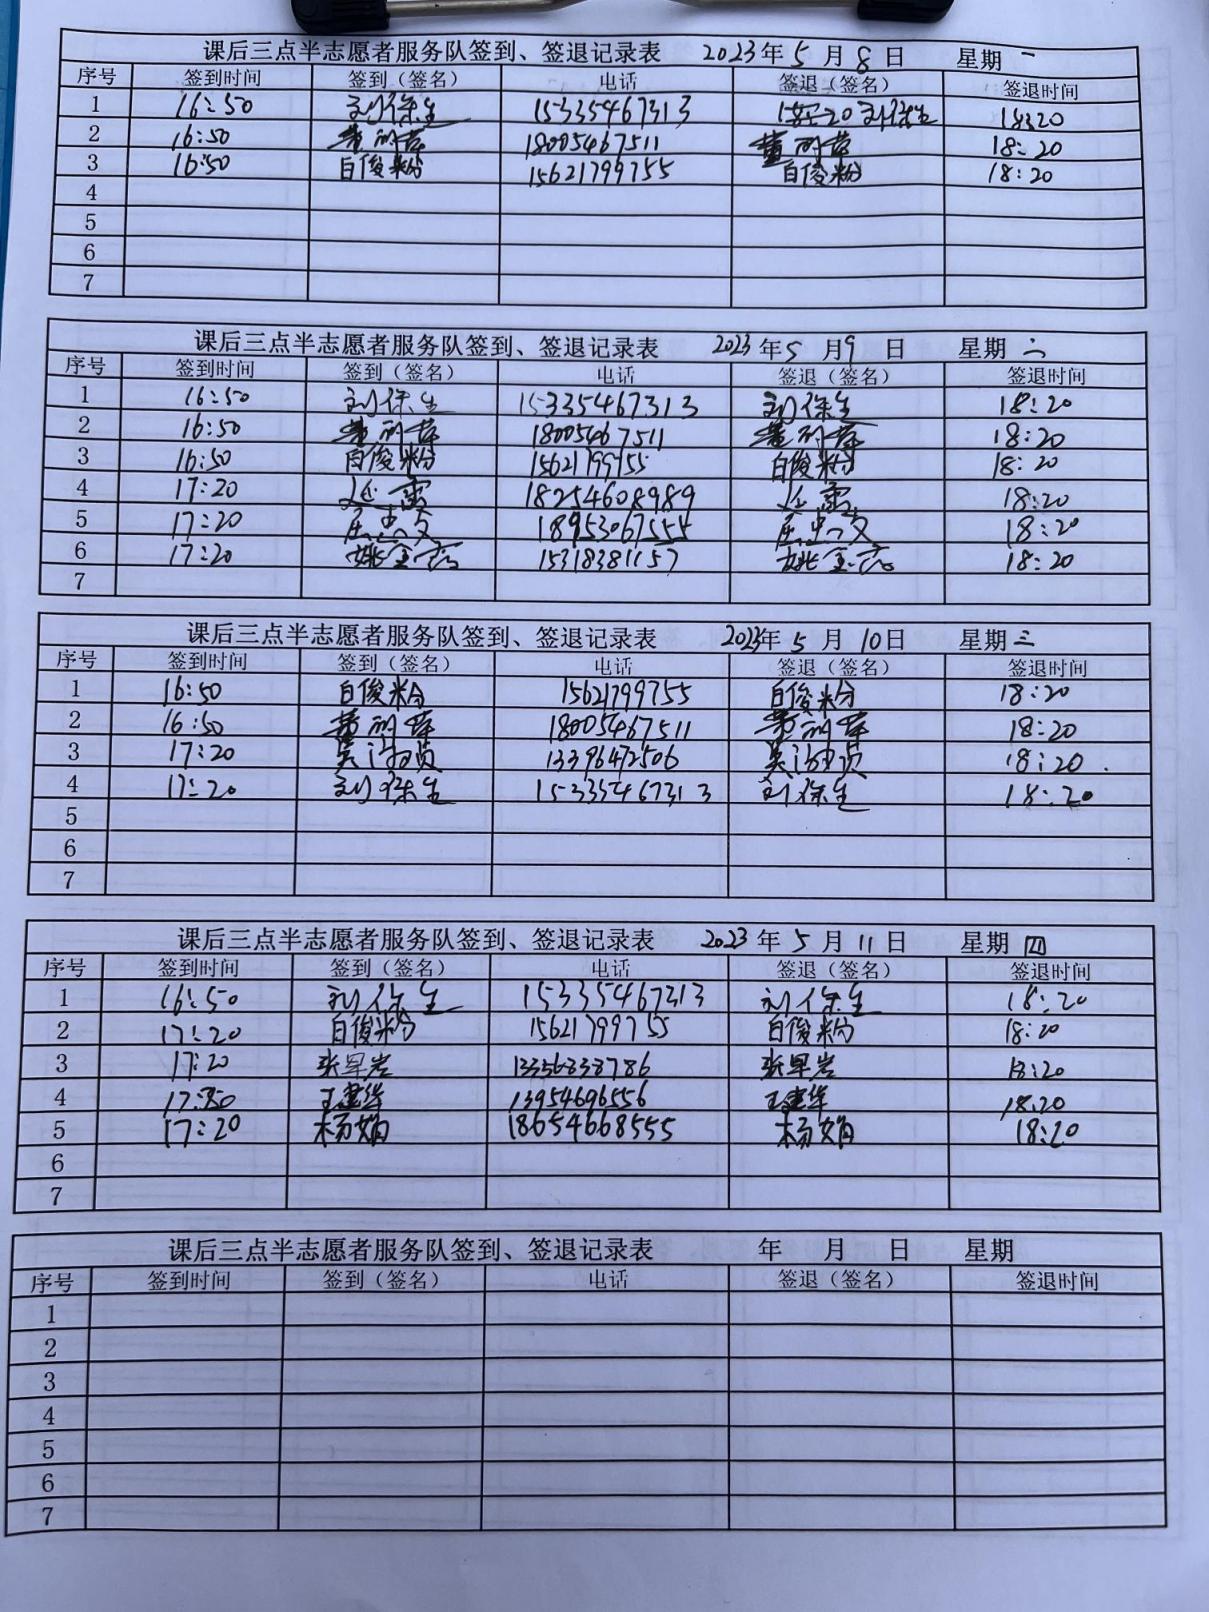 课后三点半志愿者服务队签到、签退记录表 2023年5月8日 星期一
序号 签到时间 签到（签名） 电话 签退（签名） 签退时间
1 16:50 刘保生 15335467313 刘保生 18:20
2 16:50 18005467511 18:20
3 16:50 白俊粉 15621799755 白俊粉 18:20
4
5
6
7
课后三点半志愿者服务队签到、签退记录表 2023年5月9日 星期二
序号 签到时间 签到（签名） 电话 签退（签名） 签退时间
1 16:50 刘保生 15335467313 刘保生 18:20
2 16:50 18005467511 18:20
3 16:50 白俊粉 15621799755 白俊粉 18:20
4 17:20 延雷 18254608989 延雷 18:20
5 17:20 18953067555 18:20
6 17:20 15318381157 18:20
7
课后三点半志愿者服务队签到、签退记录表 2023年5月10日 星期三
序号 签到时间 签到（签名） 电话 签退（签名） 签退时间
1 16:50 白俊粉 15621799755 白俊粉 18:20
2 16:50 18005467511 18:20
3 17:20 13396472506 18:20
4 17:20 刘保生 15335467313 刘保生 18:20
5
6
7
课后三点半志愿者服务队签到、签退记录表 2023年5月11日 星期四
序号 签到时间 签到（签名） 电话 签退（签名） 签退时间
1 16:50 刘保生 15335467313 刘保生 18:20
2 17:20 白俊粉 15621799755 白俊粉 18:20
3 17:20 张早岩 13356838786 张早岩 18:20
4 王建华 13954696556 王建华 18:20
5 17:20 杨娟 18654668555 杨娟 18:20
6
7
课后三点半志愿者服务队签到、签退记录表 年 月 日 星期
序号 签到时间 签到（签名） 电话 签退（签名） 签退时间
1
2
3
4
5
6
7